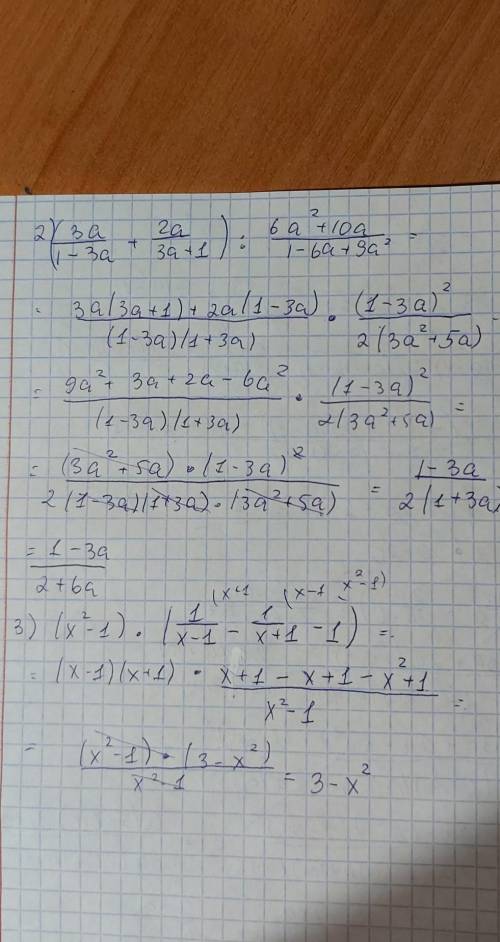 2) (3a/(1-3a) + 2a/(3a+1)) : (6a²+10a)/(1-6a+9a²) =
= (3a(3a+1)+2a(1-3a))/((1-3a)(1+3a)) · (1-3a)²/(2(3a²+5a)) =
= (9a²+3a+2a-6a²)/((1-3a)(1+3a)) · (1-3a)²/(2(3a²+5a)) =
= ((3a²+5a)·(1-3a)²)/(2(1-3a)(1+3a)·(3a²+5a)) = (1-3a)/(2(1+3a)
= (1-3a)/(2+6a)
(x+1 (x-1 x²-1)
3) (x²-1)·(1/(x-1) - 1/(x+1) - 1) =
= (x-1)(x+1) · (x+1-x+1-x²+1)/(x²-1) =
= ((x²-1)·(3-x²))/(x²-1) = 3-x²